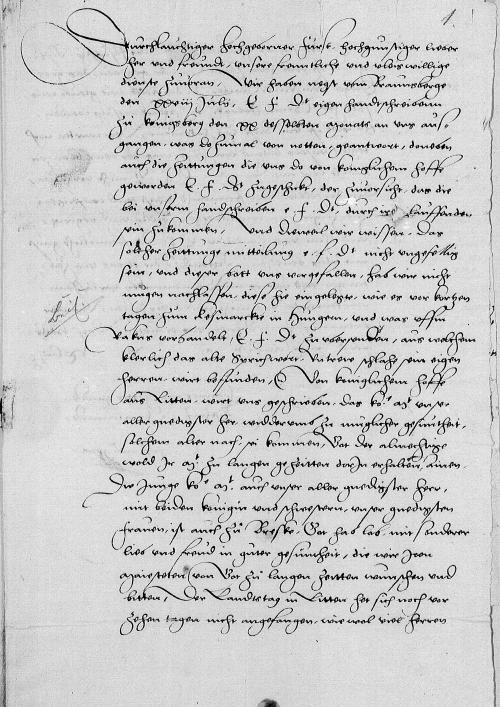 1
Durchlauchtiger Hochgeborner Furst. Hochgunstiger lieber
her und freundt, unsere freuntliche und vleis willige
dienste zuuoran, Wir haben negst vom Braunsberge
den xxviij Julij, E F Dt eigen handtschreibenn
zu konigsberg den xx desselbten monats an uns aus
gangen, was do zumal von notten, geantwort, doneben
auch die zeittungen die uns do von koniglichem hoffe
geworden E. f. Dt zugeschickt, der zuuorsicht, das die
bei unserm handschreiben e. f. Dt, durch ire lauffenden
sein zukommen, Und dieweil wir wissen, das
solcher zeittunge mitteilung e. f. dt nicht ungefellig
sein, und dieser bott uns vorgefallen, hab wir nicht
mugen nachlassen, diese hie eingelegte, wie es vor kurtzen
tagen zum kesmarckte in Hungern, und was uffm
Rakus vorhandelt, E. f. Dt zu ubersenden, aus welchem
klerlich das alte Sprichwort. Untreue schlahe sein eigen
herren, wirt befunden, Von koniglichem hoffe
aus Litten, wirt uns geschrieben, das ko. Mt. unser
aller gnedigster her widderumb zu muglicher gesuntheit,
solchem alter nach sei kommen, Got der almechtige
wold Ir Mt. zu langen gezeitten dorin erhalten, amen.
Die Junge ko. Mt. auch unser aller gnedigster herr,
mit beiden konigin und schwestern, unser gnedigsten
frauen, ist auch zu Breske, Got hab lob, mit sonderer
lieb und freud in guter gesuntheit, die wir Iren
Maiesteten von Got zu langen zeitten wunschen und
bitten, Der Landtstag in Litten het sich noch vor
zehen tagen nicht angefangen, wie wol viel herren